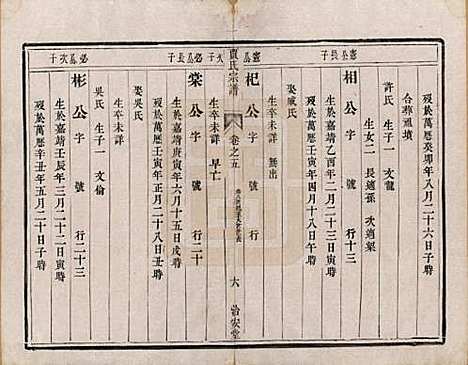 殁於萬厯癸卯年八月二十六日寅時
合葬週墳
許氏 生子一 文龍
生女二 長適孫 次適粲
憲公長子
相公 字 號 行十三
生於嘉靖乙酉年二月二十三日辰時
殁於萬厯壬寅年四月十八日午時
娶臧氏
生卒未詳 無出
憲公次子
杞公 字 號 行
賈氏宗譜
卷之五
六
治安堂
生卒未詳 早亡
棠公 字 號 行二十
生於嘉靖庚寅年六月十五日戌時
殁於萬厯壬寅年正月二十八日丑時
娶吳氏
生卒未詳
彬公 字 號 行二十三
生於嘉靖壬辰年三月二十二日寅時
吳氏 生子一 文倫
殁於萬厯辛丑年五月二十日子時